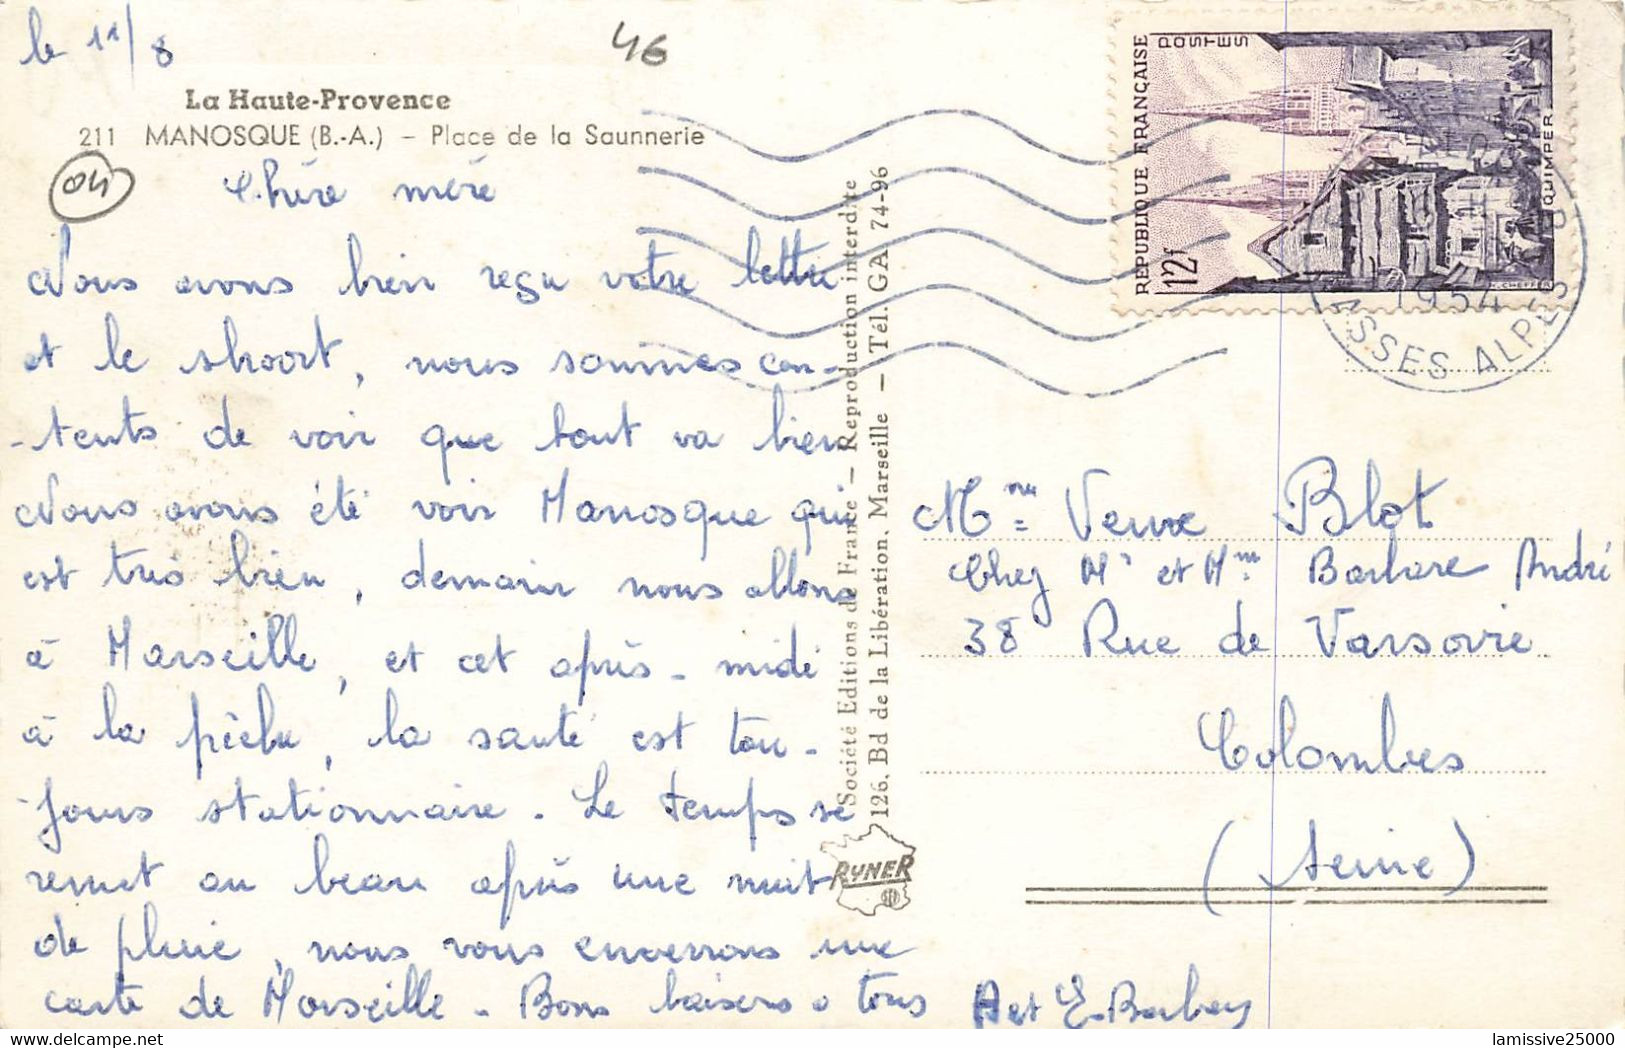 le 11/8
46
La Haute-Provence
211 MANOSQUE (B.-A.) — Place de la Saunnerie
04
Chère mère
Nous avons bien reçu votre lettre
et le shoort, nous sommes con-
-tents de voir que tout va bien
Nous avons été voir Manosque qui
est très bien, demain nous allons
à Marseille, et cet après-midi
à la pêche, la santé est tou-
-jours stationnaire. Le temps se
remet au beau après une nuit
de pluie, nous vous enverrons une
carte de Marseille. Bons baisers à tous A et E. Barbey
Société Editions de France — Reproduction interdite
126, Bd de la Libération, Marseille — Tél. GA 74-96
RYNER
REPUBLIQUE FRANÇAISE
POSTES
12f
QUIMPER
1954
BASSES ALPES
Mme Veuve Blot
Chez Mr et Mme Barbare André
38 Rue de Varsovie
Colombes
(Seine)
lamissive25000